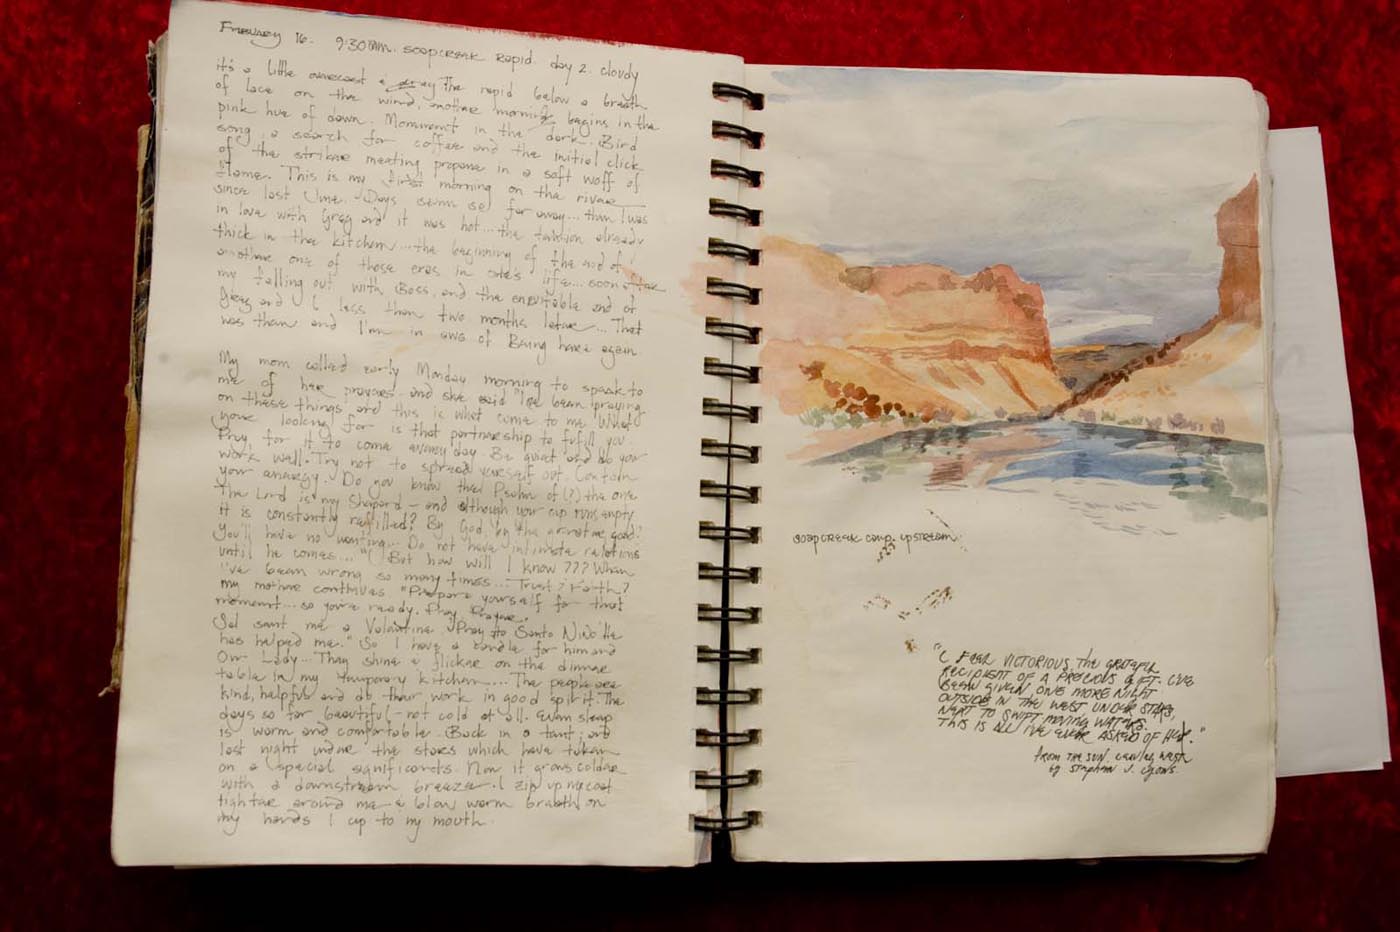 February 16. 9:30AM. soapcreek rapid. day 2. cloudy
it's a little overcast & gray the rapid below a breath
of lace on the wind, another morning begins in the
pink hue of dawn. Movement in the dark. Bird
song, a search for coffee and the initial click
of the striker meeting propane in a soft woff of
flame. This is my first morning on the river
since last June. Days seem so far away... then I was
in love with Greg and it was hot... the tension already
thick in the kitchen... the beginning of the end of
another one of those eras in one's life... soon after
my falling out with Boss, and the enevitable end of
Greg and I less than two months later... That
was then and I'm in awe of Being here again
My mom called early Monday morning to speak to
me of her prayers and she said "I've been praying
on these things and this is what came to me. What
your looking for is that partnership to fulfill you.
Pray for it to come every day. Be quiet and do your
work well. Try not to spread yourself out. Contain
your energy. Do you know the Psalm of (?) the one
The Lord is my Shepard - and although your cup runs empty
it is constantly refilled? By God, by the greatest good?
You'll have no wanting... Do not have intimate relations
until he comes..." (But how will I know??? When
I've been wrong so many times... Trust? Faith?
my mother continues "Prepare yourself for that
moment... so you're ready. Pray,
sent me a Valentine. "Pray to Santo Niño He
has helped me." So I have a candle for him and
Our Lady... They shine & flicker on the dinner
table in my temporary kitchen.... The people are
kind, helpful and do their work in good spirit. The
days so far beautiful - not cold at all. Even sleep
is warm and comfortable. Back in a tent, and
last night under the stars which have taken
on a special significants. Now it grows colder
with a downstream breeze. I zip up my coat
tighter around me & blow warm breath on
my hands I cup to my mouth.
soapcreek camp. upstream.
"I FEEL VICTORIOUS, THE GRATEFUL
RECIPIENT OF A PRECIOUS GIFT. I'VE
BEEN GIVEN ONE MORE NIGHT
OUTSIDE IN THE WEST UNDER STARS,
NEXT TO SWIFT MOVING WATERS.
THIS IS ALL I'VE EVER ASKED OF HER."
from THE SUN,
by Stephen J. Lyons.